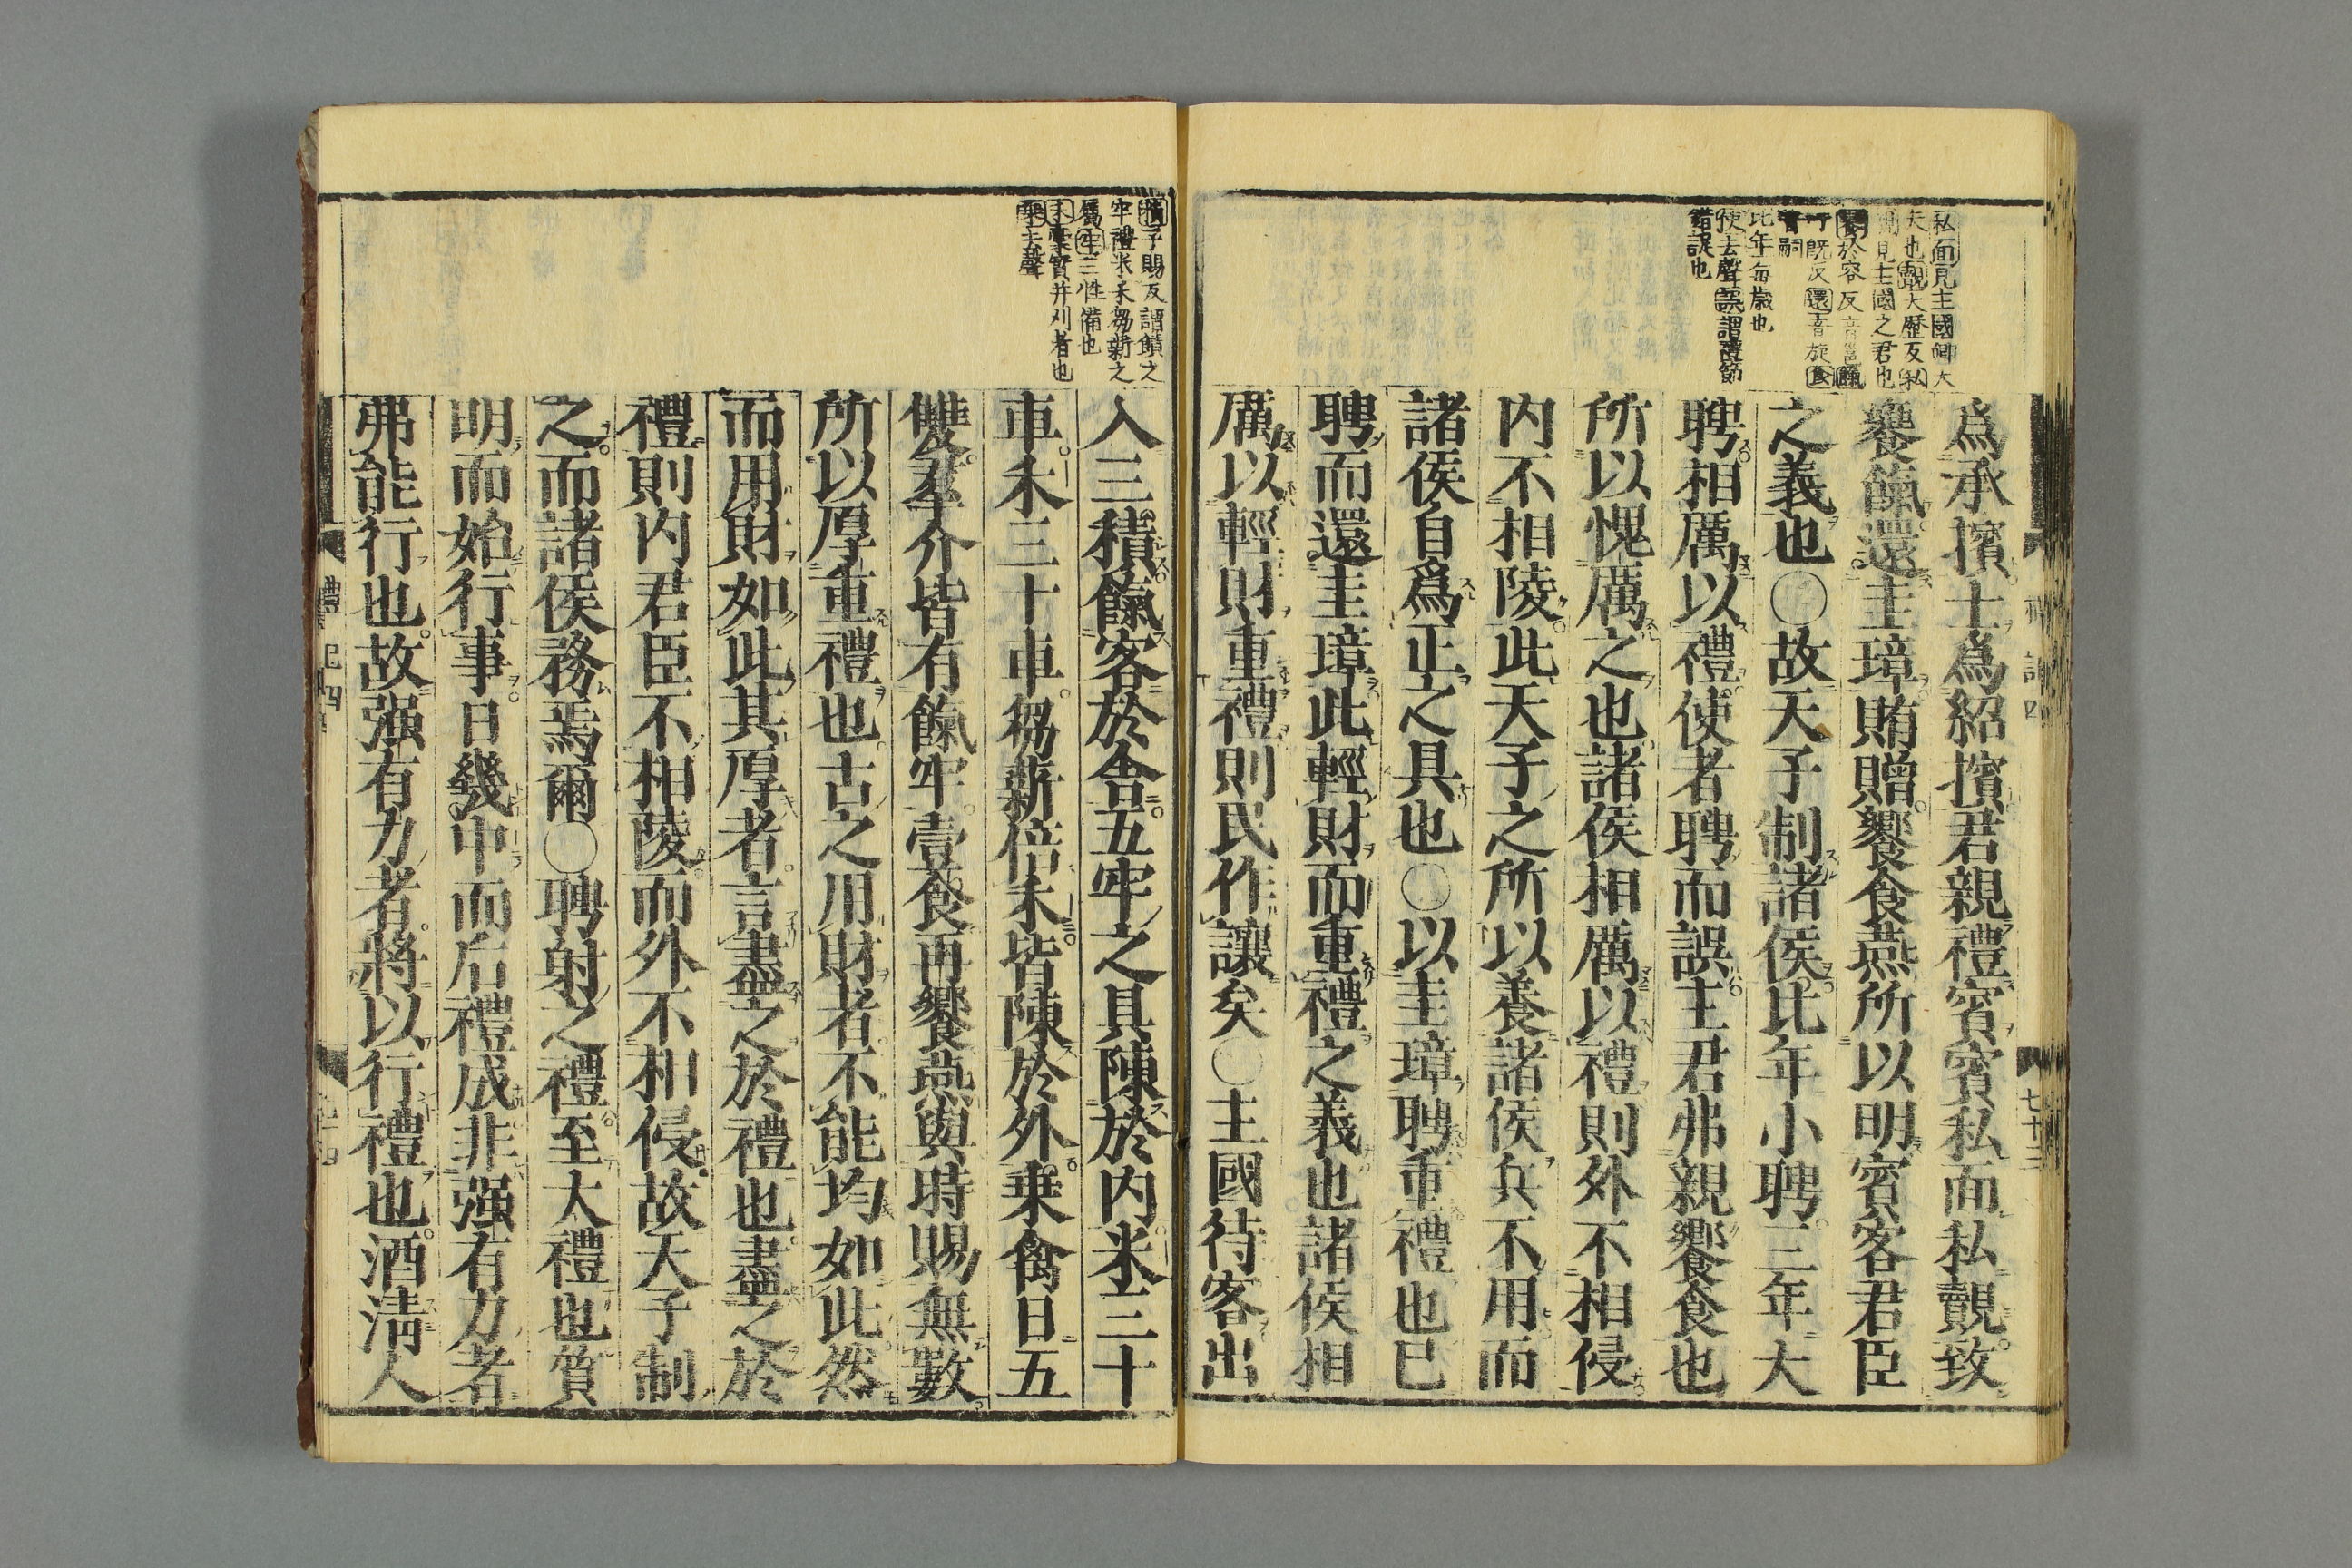 私面見主國卿大
夫也覿大歷反私
覿見主國之君也
饔於容反音邕餼
許既反還音旋食
音嗣
比年每歲也
使去聲誤謂禮節
錯誤也
爲承擯士爲紹擯君親禮賓賓私面私覿致
饔餼還圭璋賄贈饗食燕所以明賓客君臣
之義也○故天子制諸侯比年小聘三年大
聘相厲以禮使者聘而誤主君弗親饗食也
所以愧厲之也諸侯相厲以禮則外不相侵
内不相陵此天子之所以養諸侯兵不用而
諸侯自爲正之具也○以圭璋聘重禮也已
聘而還圭璋此輕財而重禮之義也諸侯相
厲以輕財重禮則民作讓矣○主國待客出
七十三
積子賜反謂饋之
牢禮米禾芻薪之
屬牢三牲備也
禾稾實并刈者也
乘去聲
入三積餼客於舍五牢之具陳於内米三十
車禾三十車芻薪倍禾皆陳於外乗禽日五
雙羣介皆有餼牢壹食再饗燕與時賜無數
所以厚重禮也古之用財者不能均如此然
而用財如此其厚者言盡之於禮也盡之於
禮則内君臣不相陵而外不相侵故天子制
之而諸侯務焉爾○聘射之禮至大禮也質
明而始行事日幾中而后禮成非强有力者
弗能行也故强有力者將以行禮也酒淸人
禮記四